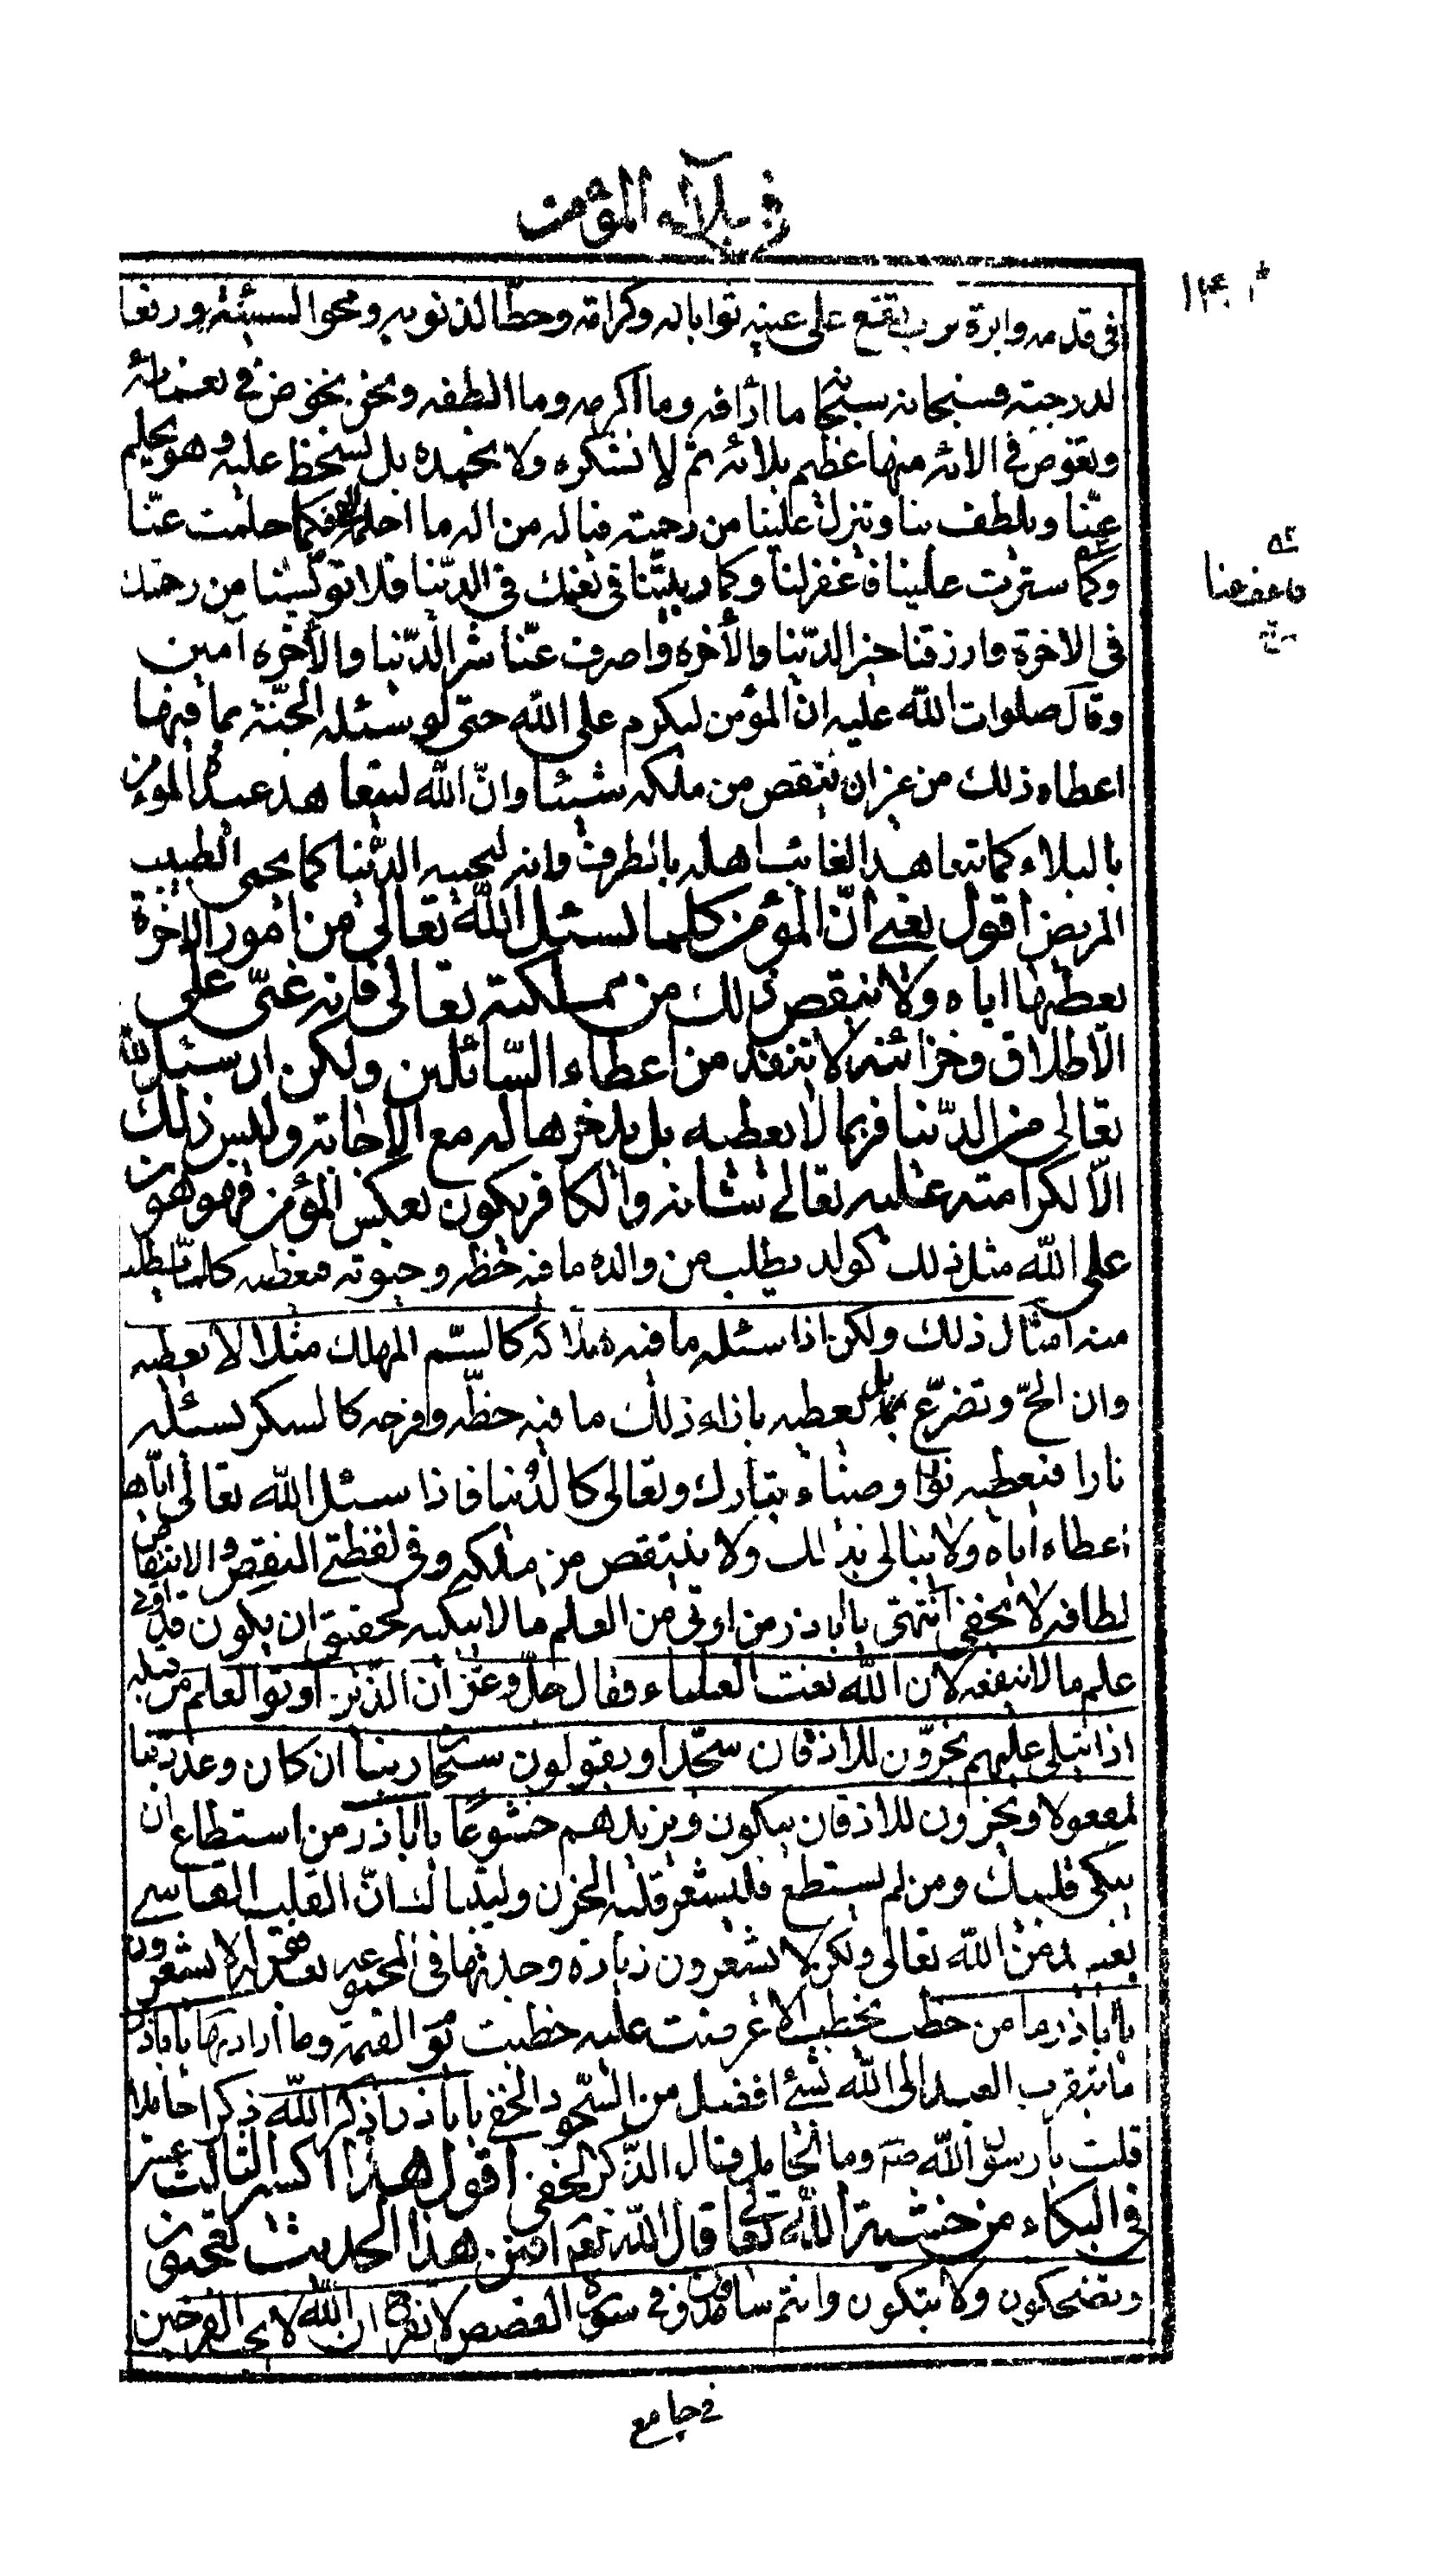 في بلاء المؤمن
في قدمه وابرة تقع على عينه ثوابا له وكرامة وحطّا لذنوبه ومحوا لسيئته ورفعا
لدرجته فسبحانه سبحانه ما أرافه وما اكرمه وما الطفه ونحن نخوض في نعمائه
ونغوص في الائه منها عظيم بلائه ثم لا نشكره ولا نحمده بل نسخط عليه وهو يحلم
عنّا ويلطف بنا وتنزل علينا من رحمته فيا له من اله ما احلمه اللهم فكما حلمت عنّا
وكما سترت علينا فاغفر لنا وكما ربيتنا في نعمك في الدّنيا فلا تؤيسنا من رحمتك
في الاخرة وارزقنا خير الدّنيا والأخرة واصرف عنّا شر الدّنيا والأخرة امين
وقال صلوات الله عليه ان المؤمن ليكرم على الله حتى لو سئله الجنّة بما فيها
اعطاه ذلك من غير ان ينقص من ملكه شيئا وانّ الله ليتعاهد عبده المؤمن
بالبلاء كما يتعاهد الغائب اهله بالطرف وانه ليحميه الدّنيا كما يحمى الطبيب
المريض اقول يعني انّ المؤمن كلما يسئل الله تعالى من امور الاخرة
يعطيها اياه ولا ينقص ذلك من مملكته تعالى فانه غنيّ على
الاطلاق وخزائنه لا تنفد من اعطاء السّائلين ولكن ان سئل الله
تعالى من الدّنيا فربما لا يعطيه بل يدخرها له مع الاجابة وليس ذلك
الّا لكرامته عليه تعالى شانه والكافر يكون بعكس المؤمن فهو هون
على الله مثل ذلك كولد يطلب من والده ما فيه حظه وحيوته فيعطيه كلما يطلب
منه امثال ذلك ولكن اذا سئله ما فيه هلاكه كالسّم المهلك مثلا لا يعطيه
وان الحّ وتضرّع بل يعطيه بازاء ذلك ما فيه حظّه وفرحه كالسكر يسئله
نارا فيعطيه نورا وضياء تبارك وتعالى كالدّنيا فاذا سئل الله تعالى اياها
اعطاه اياه ولا يبالى بذلك ولا ينتقص من ملكه وفي لفظتي النقص والانتقاص
لطافة لا تخفى انتهى يا اباذر من اوتي من العلم ما لا يبكيه لحقيق ان يكون قد اوتي
علم ما لا ينفعه لان الله نعت العلماء فقال جلّ وعزّ ان الذّين اوتوا العلم من قبله
اذا يتلى عليهم يخرّون للاذقان سجّدا ويقولون سبحان ربنا ان كان وعد ربّنا
لمفعولا ويخرون للاذقان يبكون ويزيدهم خشوعًا يا اباذر من استطاع ان
يبكى فليبك ومن لم يستطع فليشعر قلبه الحزن وليتباك انّ القلب القاسي
بعيد من الله تعالى ولكن لا تشعرون زيادة وجدتها في بعد قوله لا يشعرون
يا اباذر ما من خطب يخطب الا عرضت عليه خطبته يوم القيمة وما أراد بها يا اباذر
ما يتقرب العبد الى الله بشئ افضل من السّجود الخفي يا اباذر اذكر الله ذكرا خاملا
قلت يا رسول الله ص وما الخامل فقال الذّكر الخفي اقول هذا اكسير الثالث عشر
في البكاء من خشية الله تعالى قال الله تع افمن هذا الحديث تعجبون
وتضحكون ولا تبكون وانتم سامدون وفي سورة القصص لا تفرح ان الله لا يحب الفرحين
في جامع
م ١٢٤٠
فاعف عنا